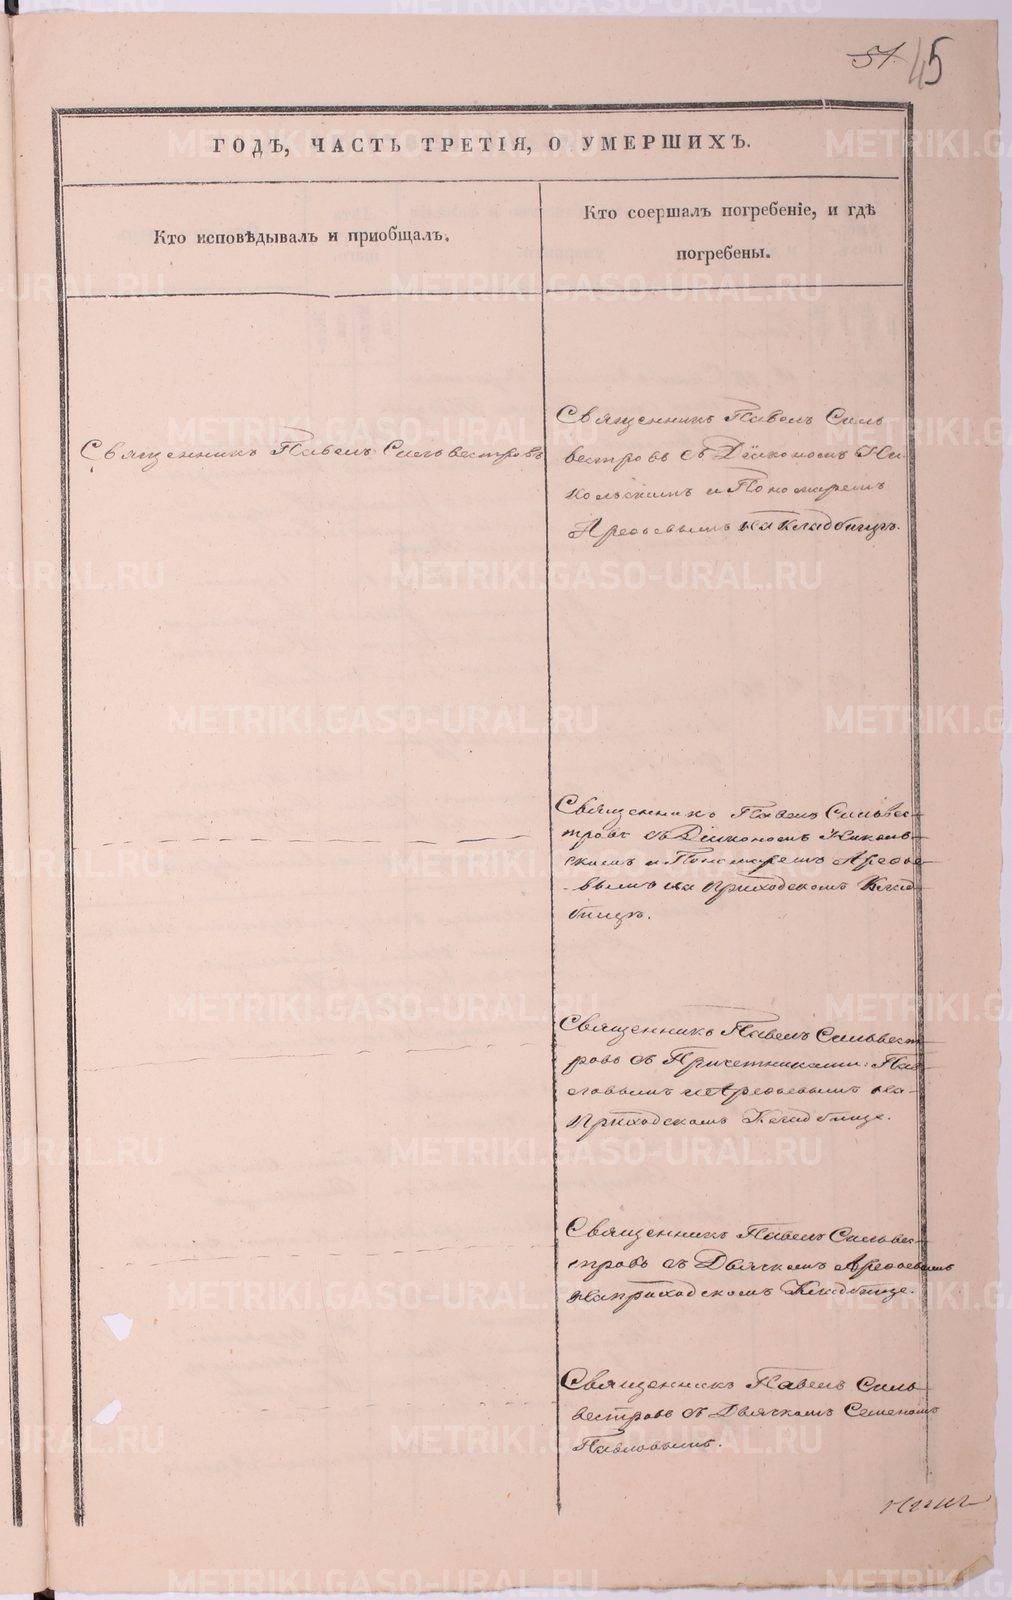 51. 45
ГОДЪ, ЧАСТЬ ТРЕТІЯ, О УМЕРШИХЪ.
Кто исповѣдывалъ и приобщалъ.
Кто соершалъ погребеніе, и гдѣ
погребены.
Священникъ Павелъ Сильвестровъ
Священникъ Павелъ Силь
вестровъ съ Діякономъ Ни
кольскимъ и Пономаремъ
Арефьевымъ на кладбищѣ.
Священникъ Павелъ Сильвес-
тровъ съ Діякономъ Николь-
скимъ и Пономаремъ Арефье-
вымъ на приходскомъ Клад-
бищѣ.
Священникъ Павелъ Сильвест
ровъ съ Причетниками: Пав-
ловымъ и Арефьевымъ на-
приходскомъ Кладбище.
Священникъ Павелъ Сильве-
стровъ съ Дьячкомъ Арефьевымъ
на приходскомъ Кладбище.
Священникъ Павелъ Силь
вестровъ съ Дьячкомъ Семеномъ
Павловымъ.
METRIKI.GASO-URAL.RU